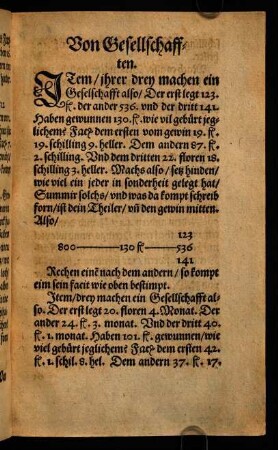 Von Gesellschaff-
ten.
ITem/ jhrer drey machen ein
Geselschafft also/ Der erst legt 123.
fl. der ander 536. vnd der dritt 141
Haben gewunnen 130. fl. wie vil gebürt jeg-
lichem? Facit dem ersten vom gewin 19. fl.
19. schilling 9. heller. Dem andern 87. fl.
2. schilling. Vnd dem dritten 22. floren 18.
schilling 3. heller. Machs also/ setz hinden/
wie viel ein jeder in sonderheit gelegt hat/
Summir solchs/ vnd was da kompt schreib
forn/ ist dein Theiler/ vñ den gewin mitten.
Also/
123
800 — 130 fl. — 536
141
Rechen einē nach dem andern/ so kompt
eim sein facit wie oben bestimpt.
Item/ drey machen ein Gesellschafft al-
so. Der erst legt 20. floren 4. Monat. Der
ander 24. fl. 3. monat. Vnd der dritt 40.
fl. 1. monat. Haben 101. fl. gewunnen/ wie
viel gebürt jeglichem? Facit dem ersten 42.
fl. 1. schil. 8. hel. Dem andern 37. fl. 17.